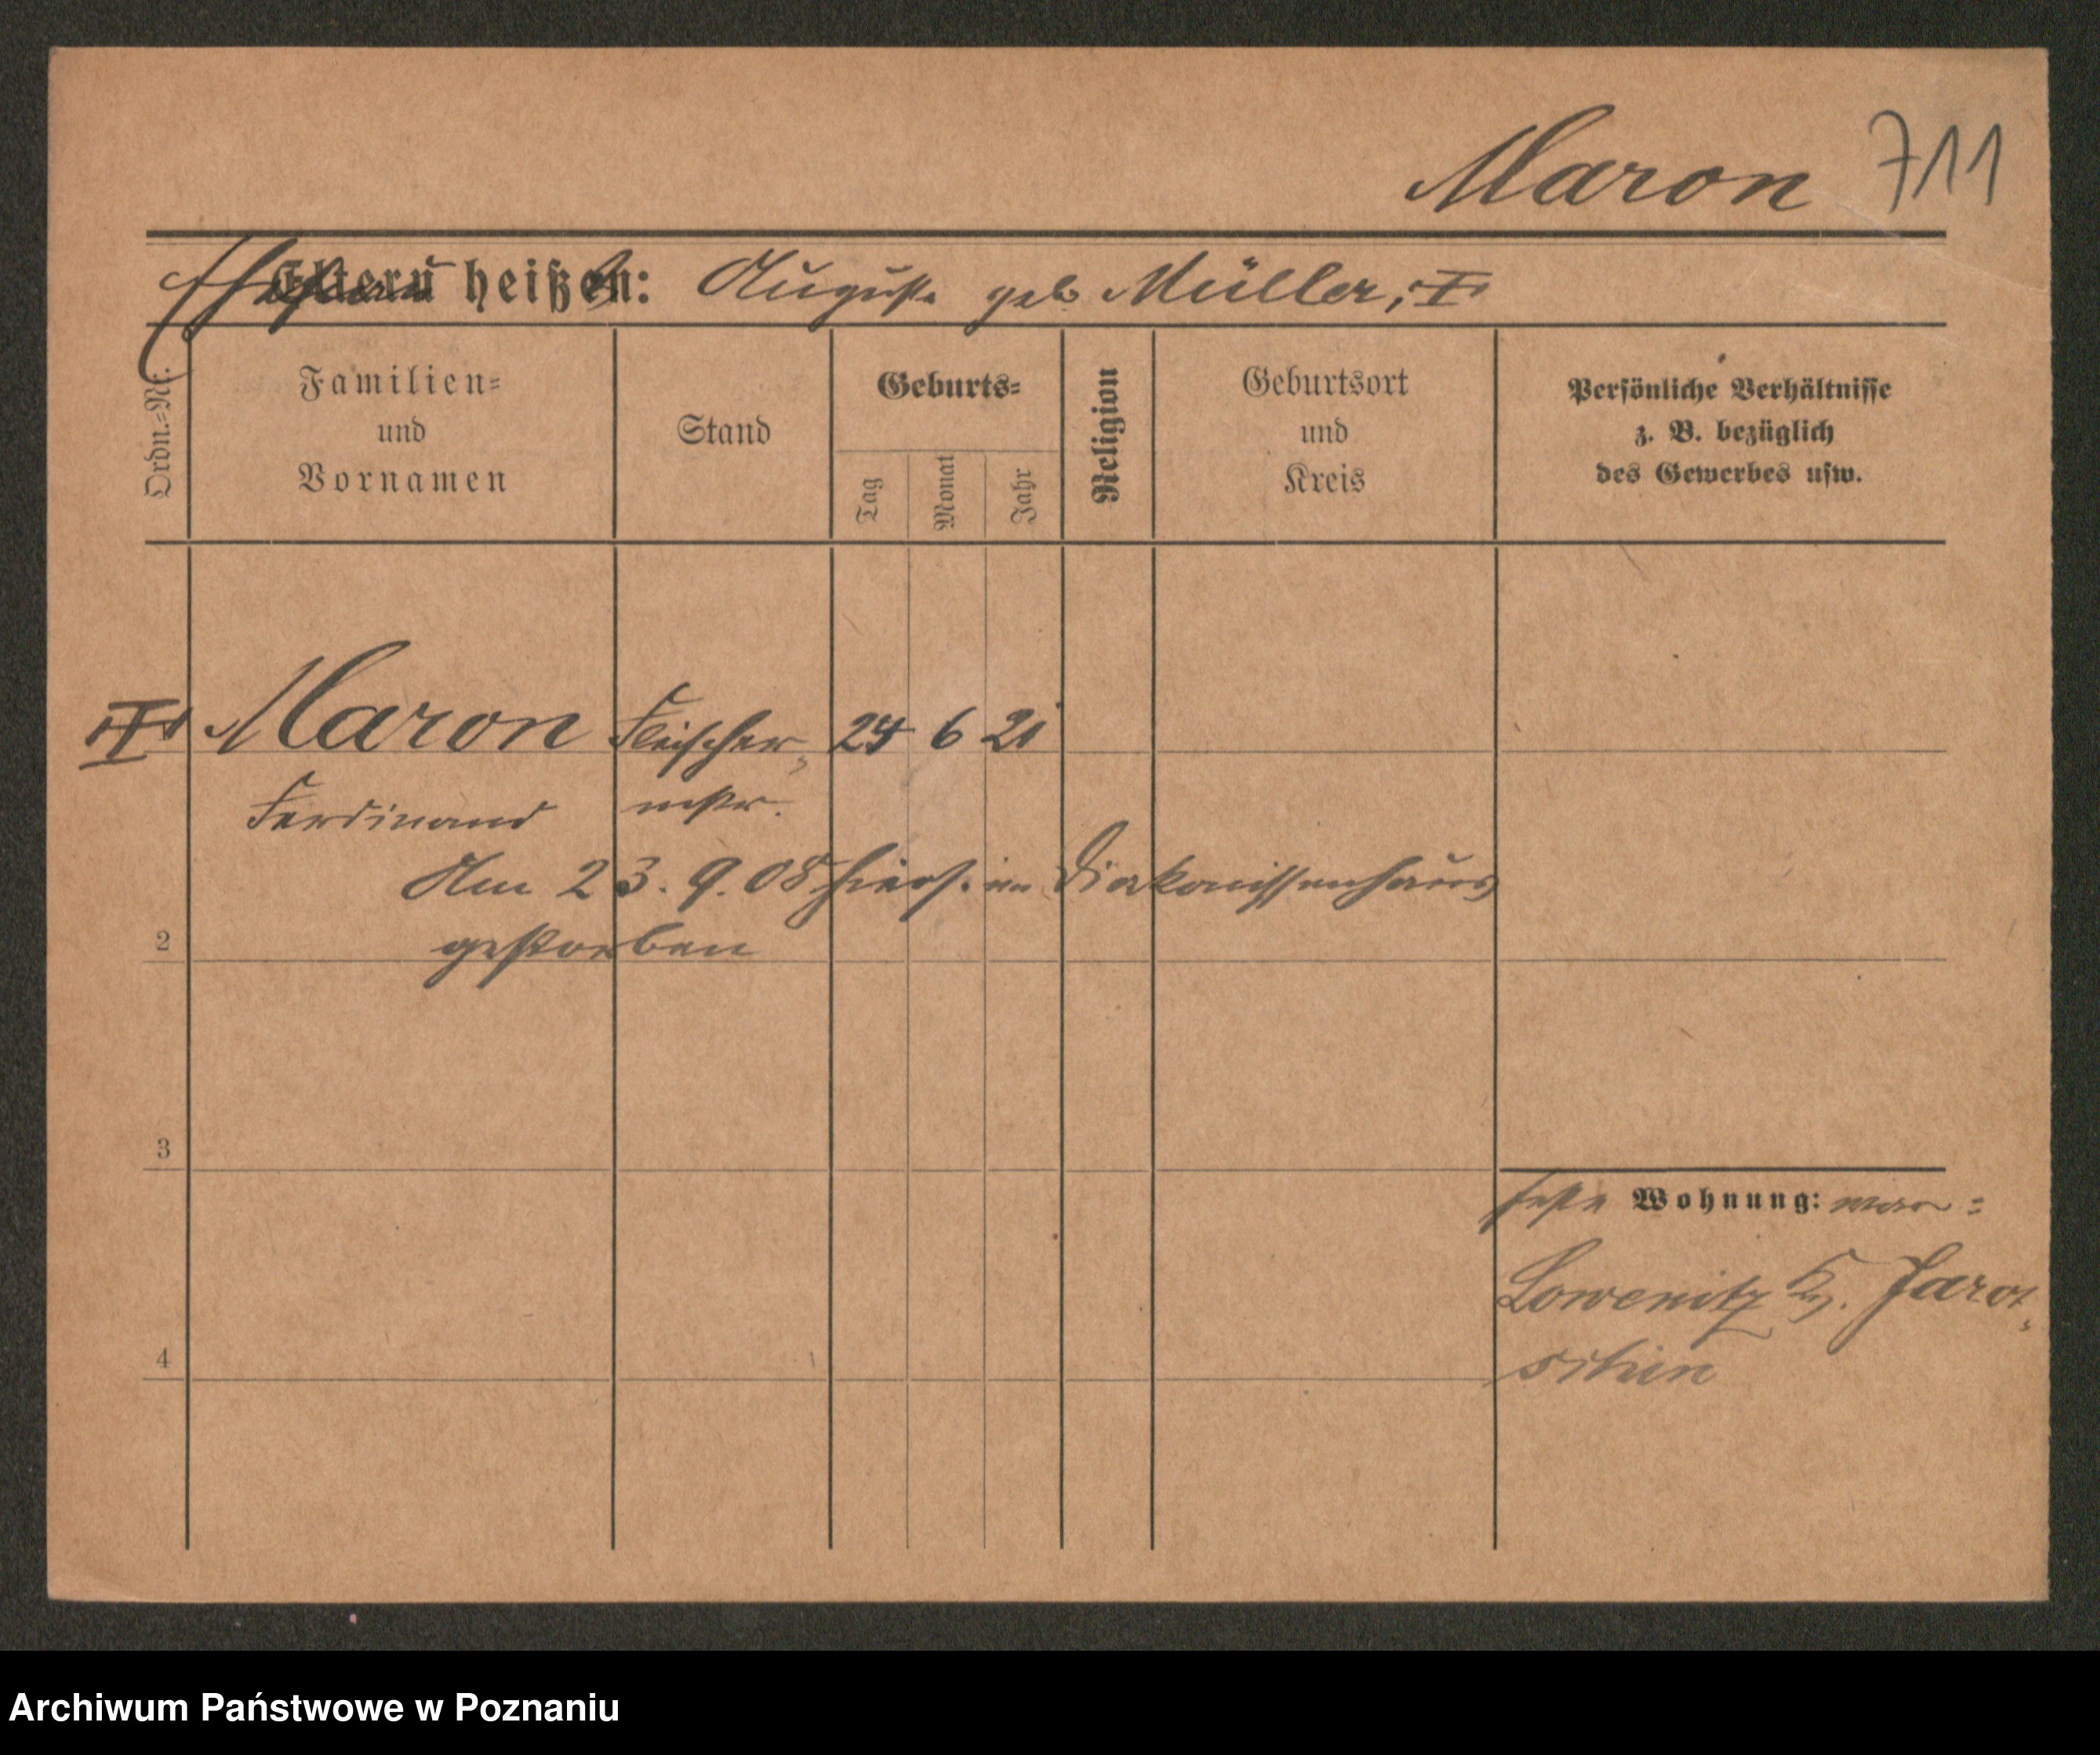 Maron 711
Ehefrau Eltern heißen: Auguste geb Müller, I
Ordn.=Nr.
Familien=
und
Vornamen
Stand
Geburts=
Tag
Monat
Jahr
Religion
Geburtsort
und
Kreis
Persönliche Verhältnisse
z. B. bezüglich
des Gewerbes usw.
Maron Fleischer- 24 6 21
Ferdinand mstr.
Am 23. 9. 08 hiers. im Diakonissenhaus
2 gestorben
3
feste Wohnung: war:
Lowenitz Kr. Jarot-
4 schin
Archiwum Państwowe w Poznaniu